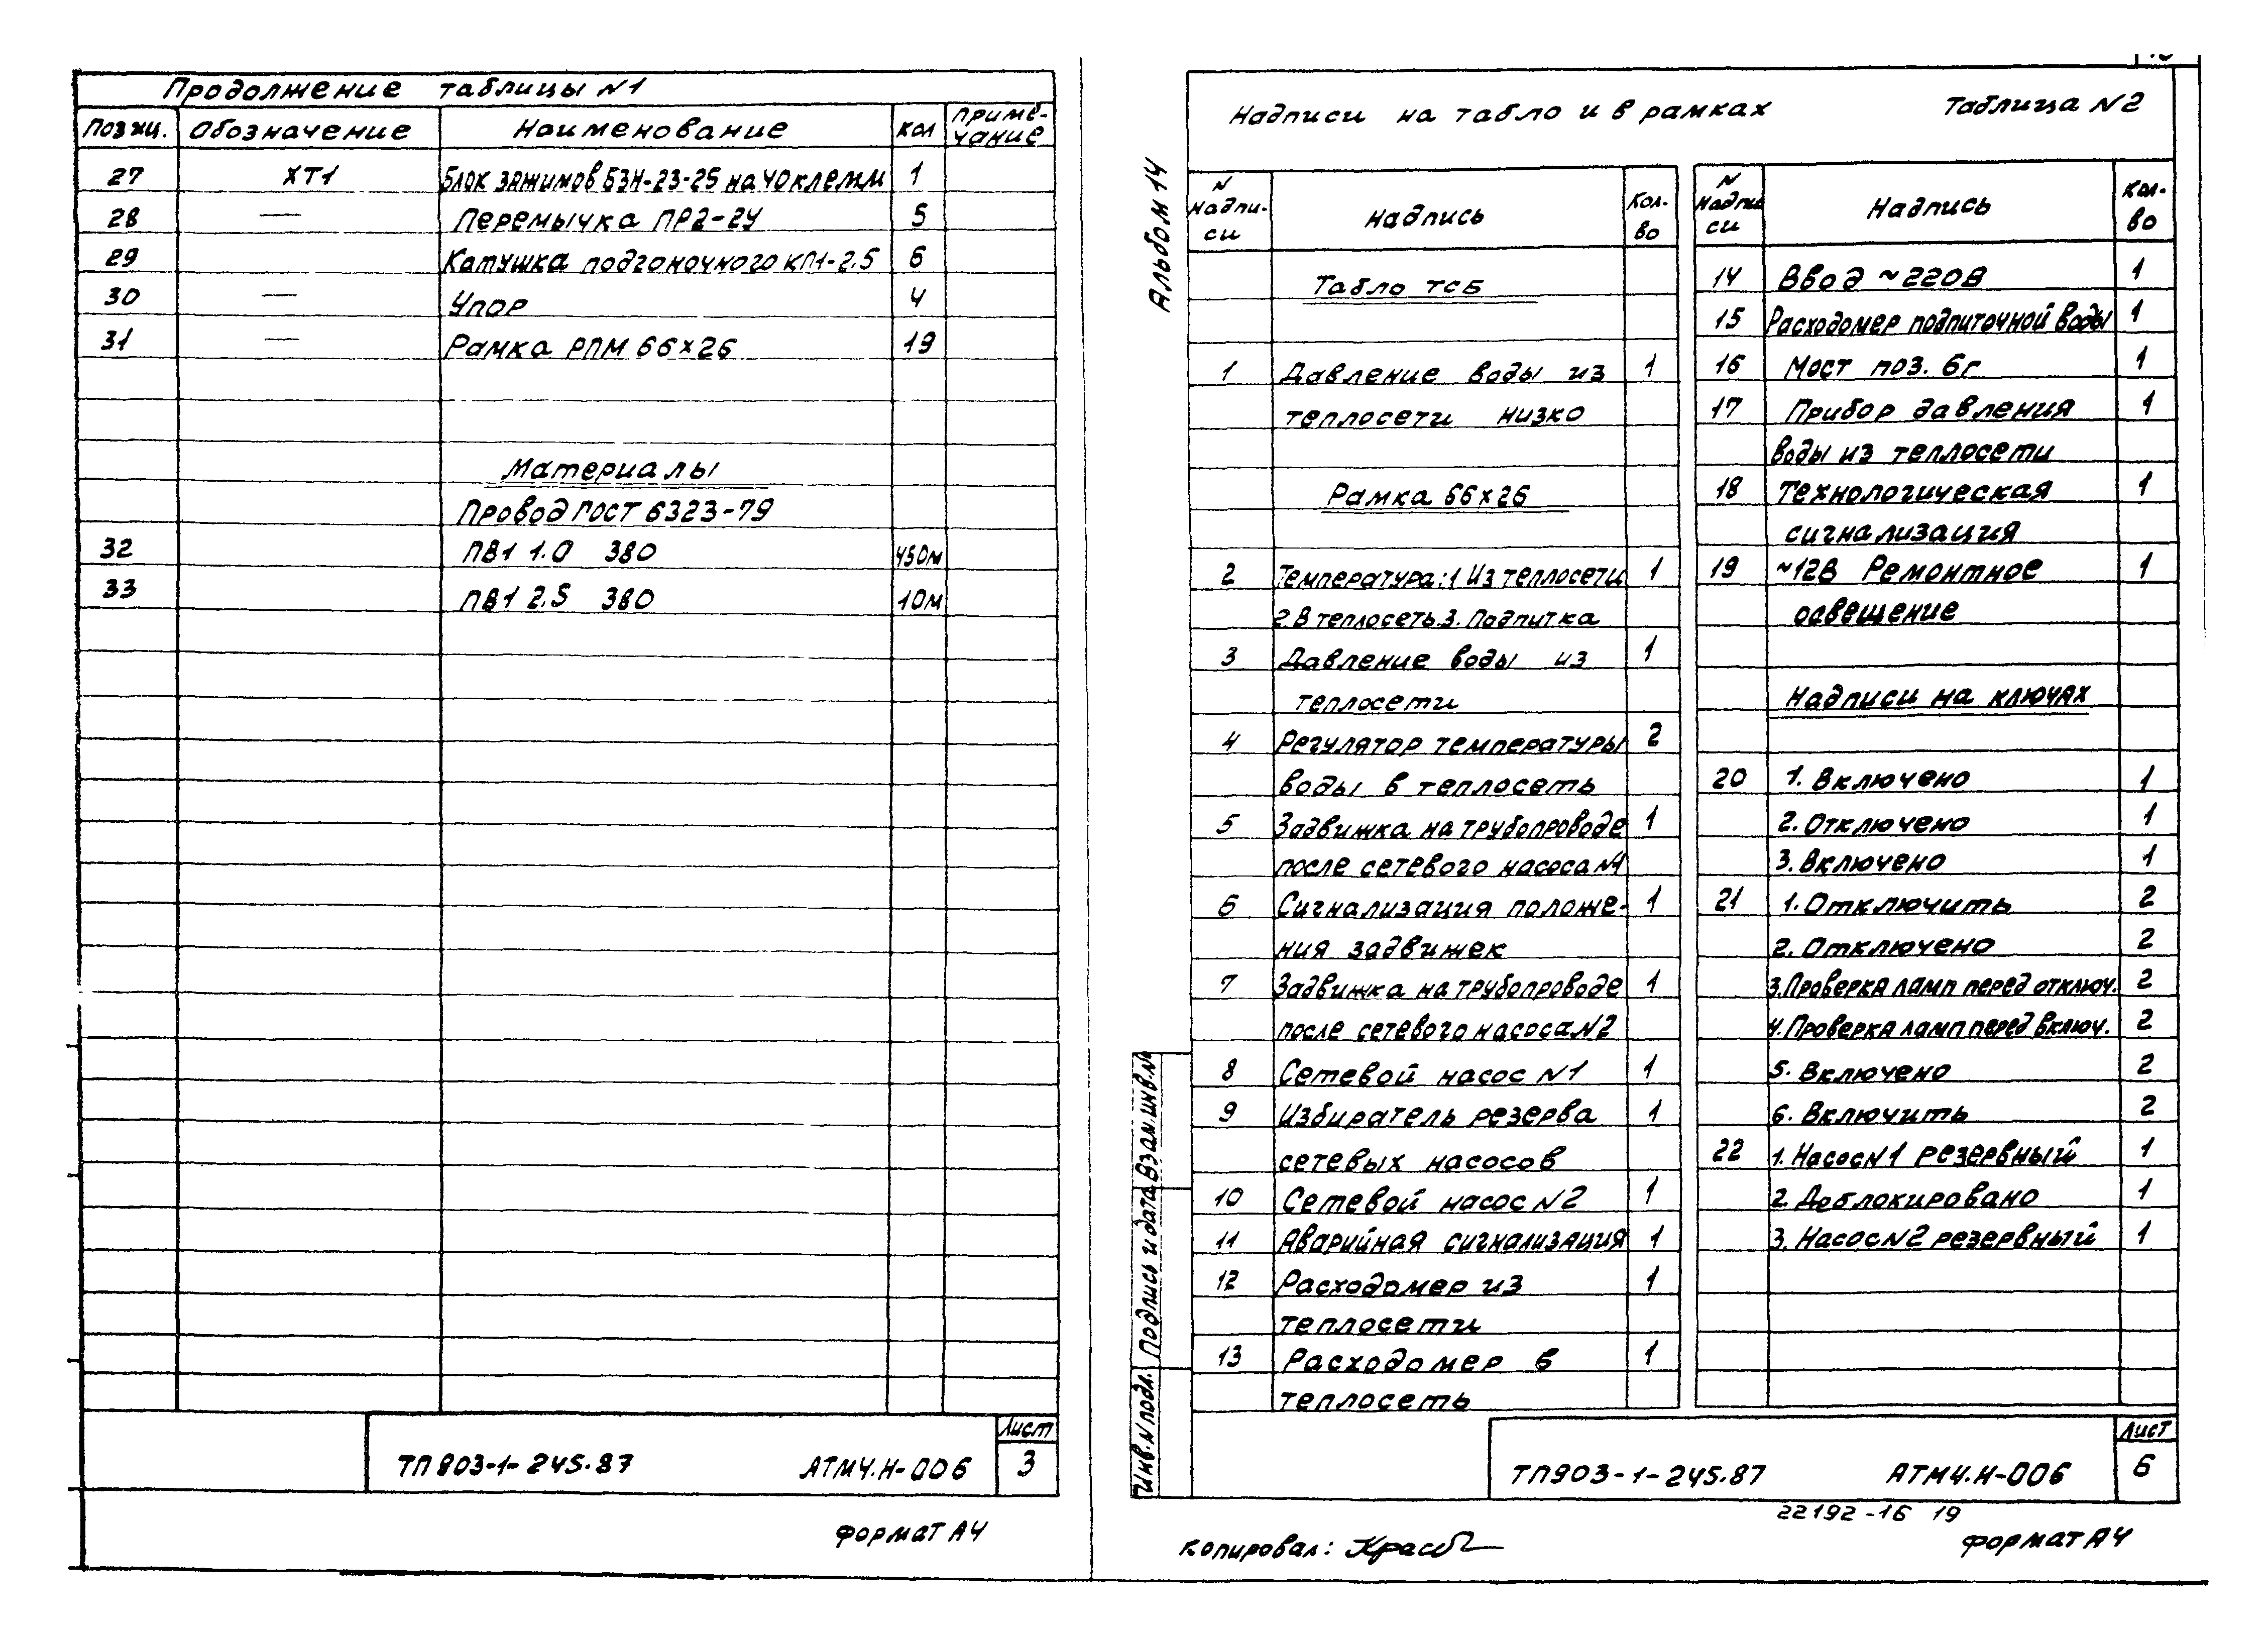 Продолжение таблицы №1
Поз иц. Обозначение Наименование Кол Приме-
чание
27 ХТ1 Блок зажимов БЗН-23-25 на 40 клемм 1
28 — Перемычка ПР2-2У 5
29 Катушка подгоночного КП1-2.5 6
30 — Упор 4
31 — Рамка РПМ 66×26 19
Материалы
Провод ГОСТ 6323-79
32 ПВ1 1.0 380 450м
33 ПВ1 2.5 380 10м
ТП 903-1-245.87 АТМ4.Н-006
Лист
3
Формат А4
Альбом 14
Надписи на табло и в рамках Таблица №2
N
надпи-
си
Надпись
Кол-
во
Табло ТСБ
1 Давление воды из 1
теплосети низко
Рамка 66×26
2 Температура: 1 Из теплосети 1
2. В теплосеть. 3. Подпитка
3 Давление воды из 1
теплосети
4 Регулятор температуры 2
воды в теплосеть
5 Задвижка на трубопроводе 1
после сетевого насоса №1
6 Сигнализация положе- 1
ния задвижек
7 Задвижка на трубопроводе 1
после сетевого насоса №2
8 Сетевой насос №1 1
9 Избиратель резерва 1
сетевых насосов
10 Сетевой насос №2 1
11 Аварийная сигнализация 1
12 Расходомер из 1
теплосети
13 Расходомер в 1
теплосеть
N
надпи
си
Надпись
Кол-
во
14 Ввод ~220В 1
15 Расходомер подпиточной воды 1
16 Мост поз. 6г 1
17 Прибор давления 1
воды из теплосети
18 Технологическая 1
сигнализация
19 ~12В Ремонтное 1
освещение
Надписи на ключах
20 1. Включено 1
2. Отключено 1
3. Включено 1
21 1. Отключить 2
2. Отключено 2
3. Проверка ламп перед отключ. 2
4. Проверка ламп перед включ. 2
5. Включено 2
6. Включить 2
22 1. Насос №1 резервный 1
2. Деблокировано 1
3. Насос №2 резервный 1
Взам. инв. №
Подпись и дата
Инв. N подл.
ТП903-1-245.87 АТМ4.Н-006
Лист
6
22192-16 19
Копировал:
Формат А4